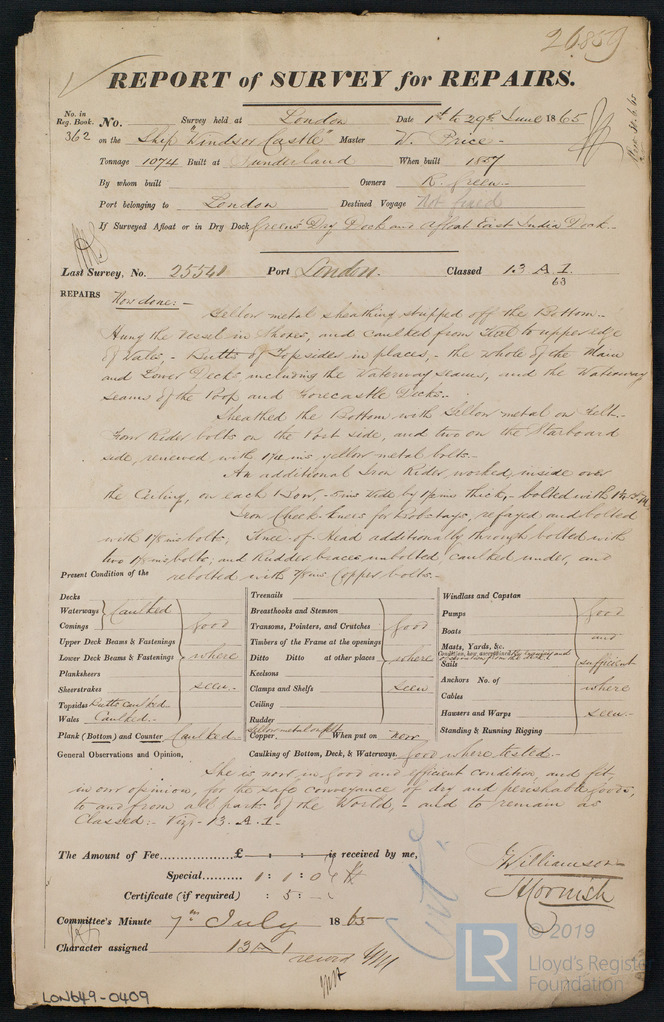 26859
REPORT of SURVEY for REPAIRS.
No. in Reg. Book. No. Survey held at London Date 1st to 29th June 1865
362 on the Ship "Windsor Castle" Master W. Price
Tonnage 1074 Built at Sunderland When built 1857
By whom built Owners R. Green
Port belonging to London Destined Voyage Not fixed
If Surveyed Afloat or in Dry Dock Green's Dry Dock and afloat East India Dock
Last Survey, No. 25541 Port London. Classed 13 A 1.
63
REPAIRS Now done:-
Yellow metal sheathing stripped off the Bottom.-
Hung the Vessel in Shores, and caulked from Keel to upper edge
of Wales,- Butts of Topsides in places,- the whole of the Main
and Lower Decks including the Waterway seams, and the Waterway
seams of the Poop and Forecastle Decks.-
Sheathed the Bottom with Yellow metal on Felt.-
Four Rider bolts on the Port side, and two on the Starboard
side, renewed with yellow metal bolts.-
An additional Iron Rider, worked inside over
the Ceiling, on each Bow,- 5 ins wide by ins thick,- bolted with
Iron Cheek-knees for Bobstays, refayed and bolted
with ins bolts, Knee-of-Head additionally through bolted with
two ins bolts; and Rudder braces unbolted, caulked under, and
rebolted with 7/8 ins Copper bolts.-
Present Condition of the
Decks
Waterways Caulked
Comings good
Upper Deck Beams & Fastenings
Lower Deck Beams & Fastenings where
Planksheers
Sheerstrakes seen.-
Topsides Butts caulked
Wales Caulked.-
Plank (Bottom) and Counter Caulked
Treenails
Breasthooks and Stemson
Transoms, Pointers, and Crutches good
Timbers of the Frame at the openings
Ditto Ditto at other places where
Keelsons
Clamps and Shelfs seen
Ceiling
Rudder
Yellow metal on felt
Copper. When put on new
Windlass and Capstan
Pumps good
Boats and
Masts, Yards, &c.
Condition, how ascertained
Sails sufficient
Anchors No. of where
Cables
Hausers and Warps seen.-
Standing & Running Rigging
Caulking of Bottom, Deck, & Waterways. good where tested.-
General Observations and Opinion,
She is now in good and efficient condition, and fit,
in our opinion, for the safe conveyance of dry and perishable goods,
to and from all parts of the World,- and to remain as
Classed:- Viz:- 13. A. 1-
The Amount of Fee £ : : is received by me,
Special 1 : 1 : 0
Certificate (if required) : 5 : -
J Williamson
H Cornish
Cert.
Committee's Minute 7th July 1865
Character assigned 13 A 1
record
LON649-0409
LR
© 2019
Lloyd's Register
Foundation